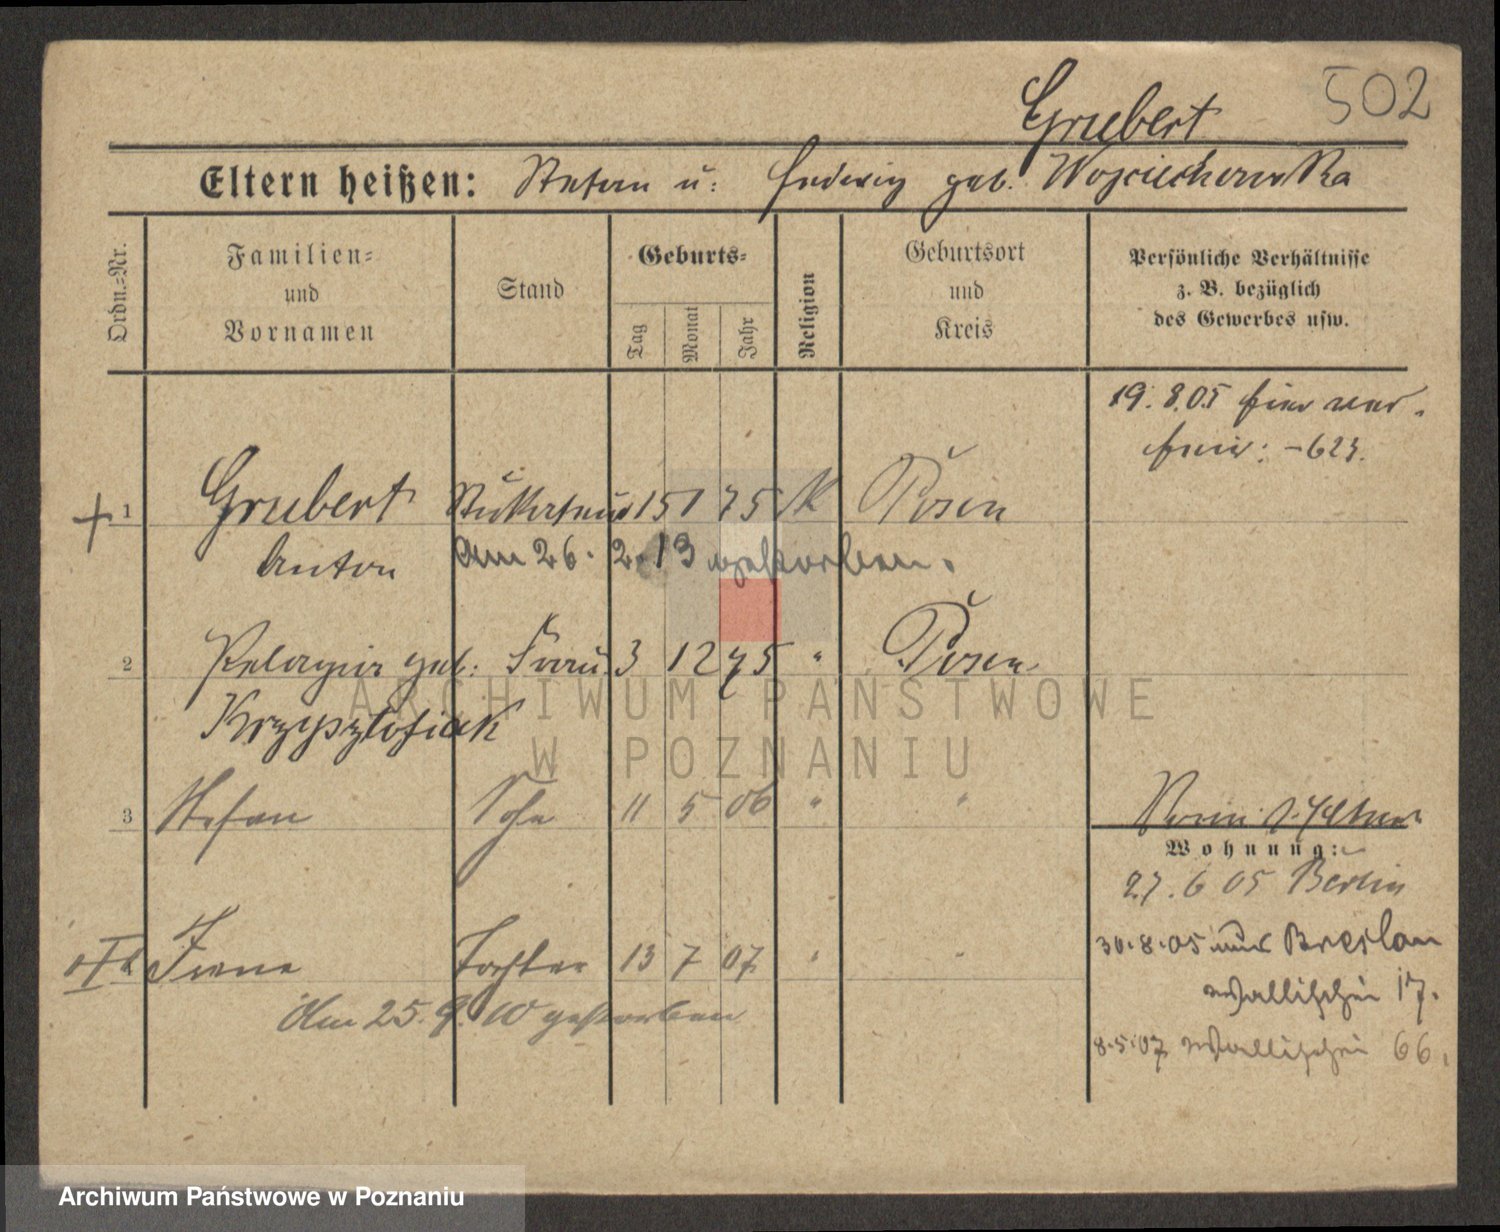 502
Grubert
Eltern heißen: Stefan u: Hedwig geb. Wojciechowska
Ordn.-Nr.
Familien-
und
Vornamen
Stand
Geburts-
Tag
Monat
Jahr
Religion
Geburtsort
und
Kreis
Persönliche Verhältnisse
z. B. bezüglich
des Gewerbes usw.
19. 8.05 hier ver-
1 Grubert 15 1 75 K Posen
Anton Am 26. 2. 13 gestorben.
2 Pelagia geb. Frau 3 12 75 " Posen
Krzysztofiak
3 Stefan Sohn 11 5 06 " "
Wohnung:
27. 6 05 Berlin
Irena Tochter 13 7 07 " "
30.8.05 aus Breslau
Am 25. 9. 10 gestorben
Wallischei 17.
8.5.07 Wallischei 66.
ARCHIWUM PAŃSTWOWE
W POZNANIU
Archiwum Państwowe w Poznaniu